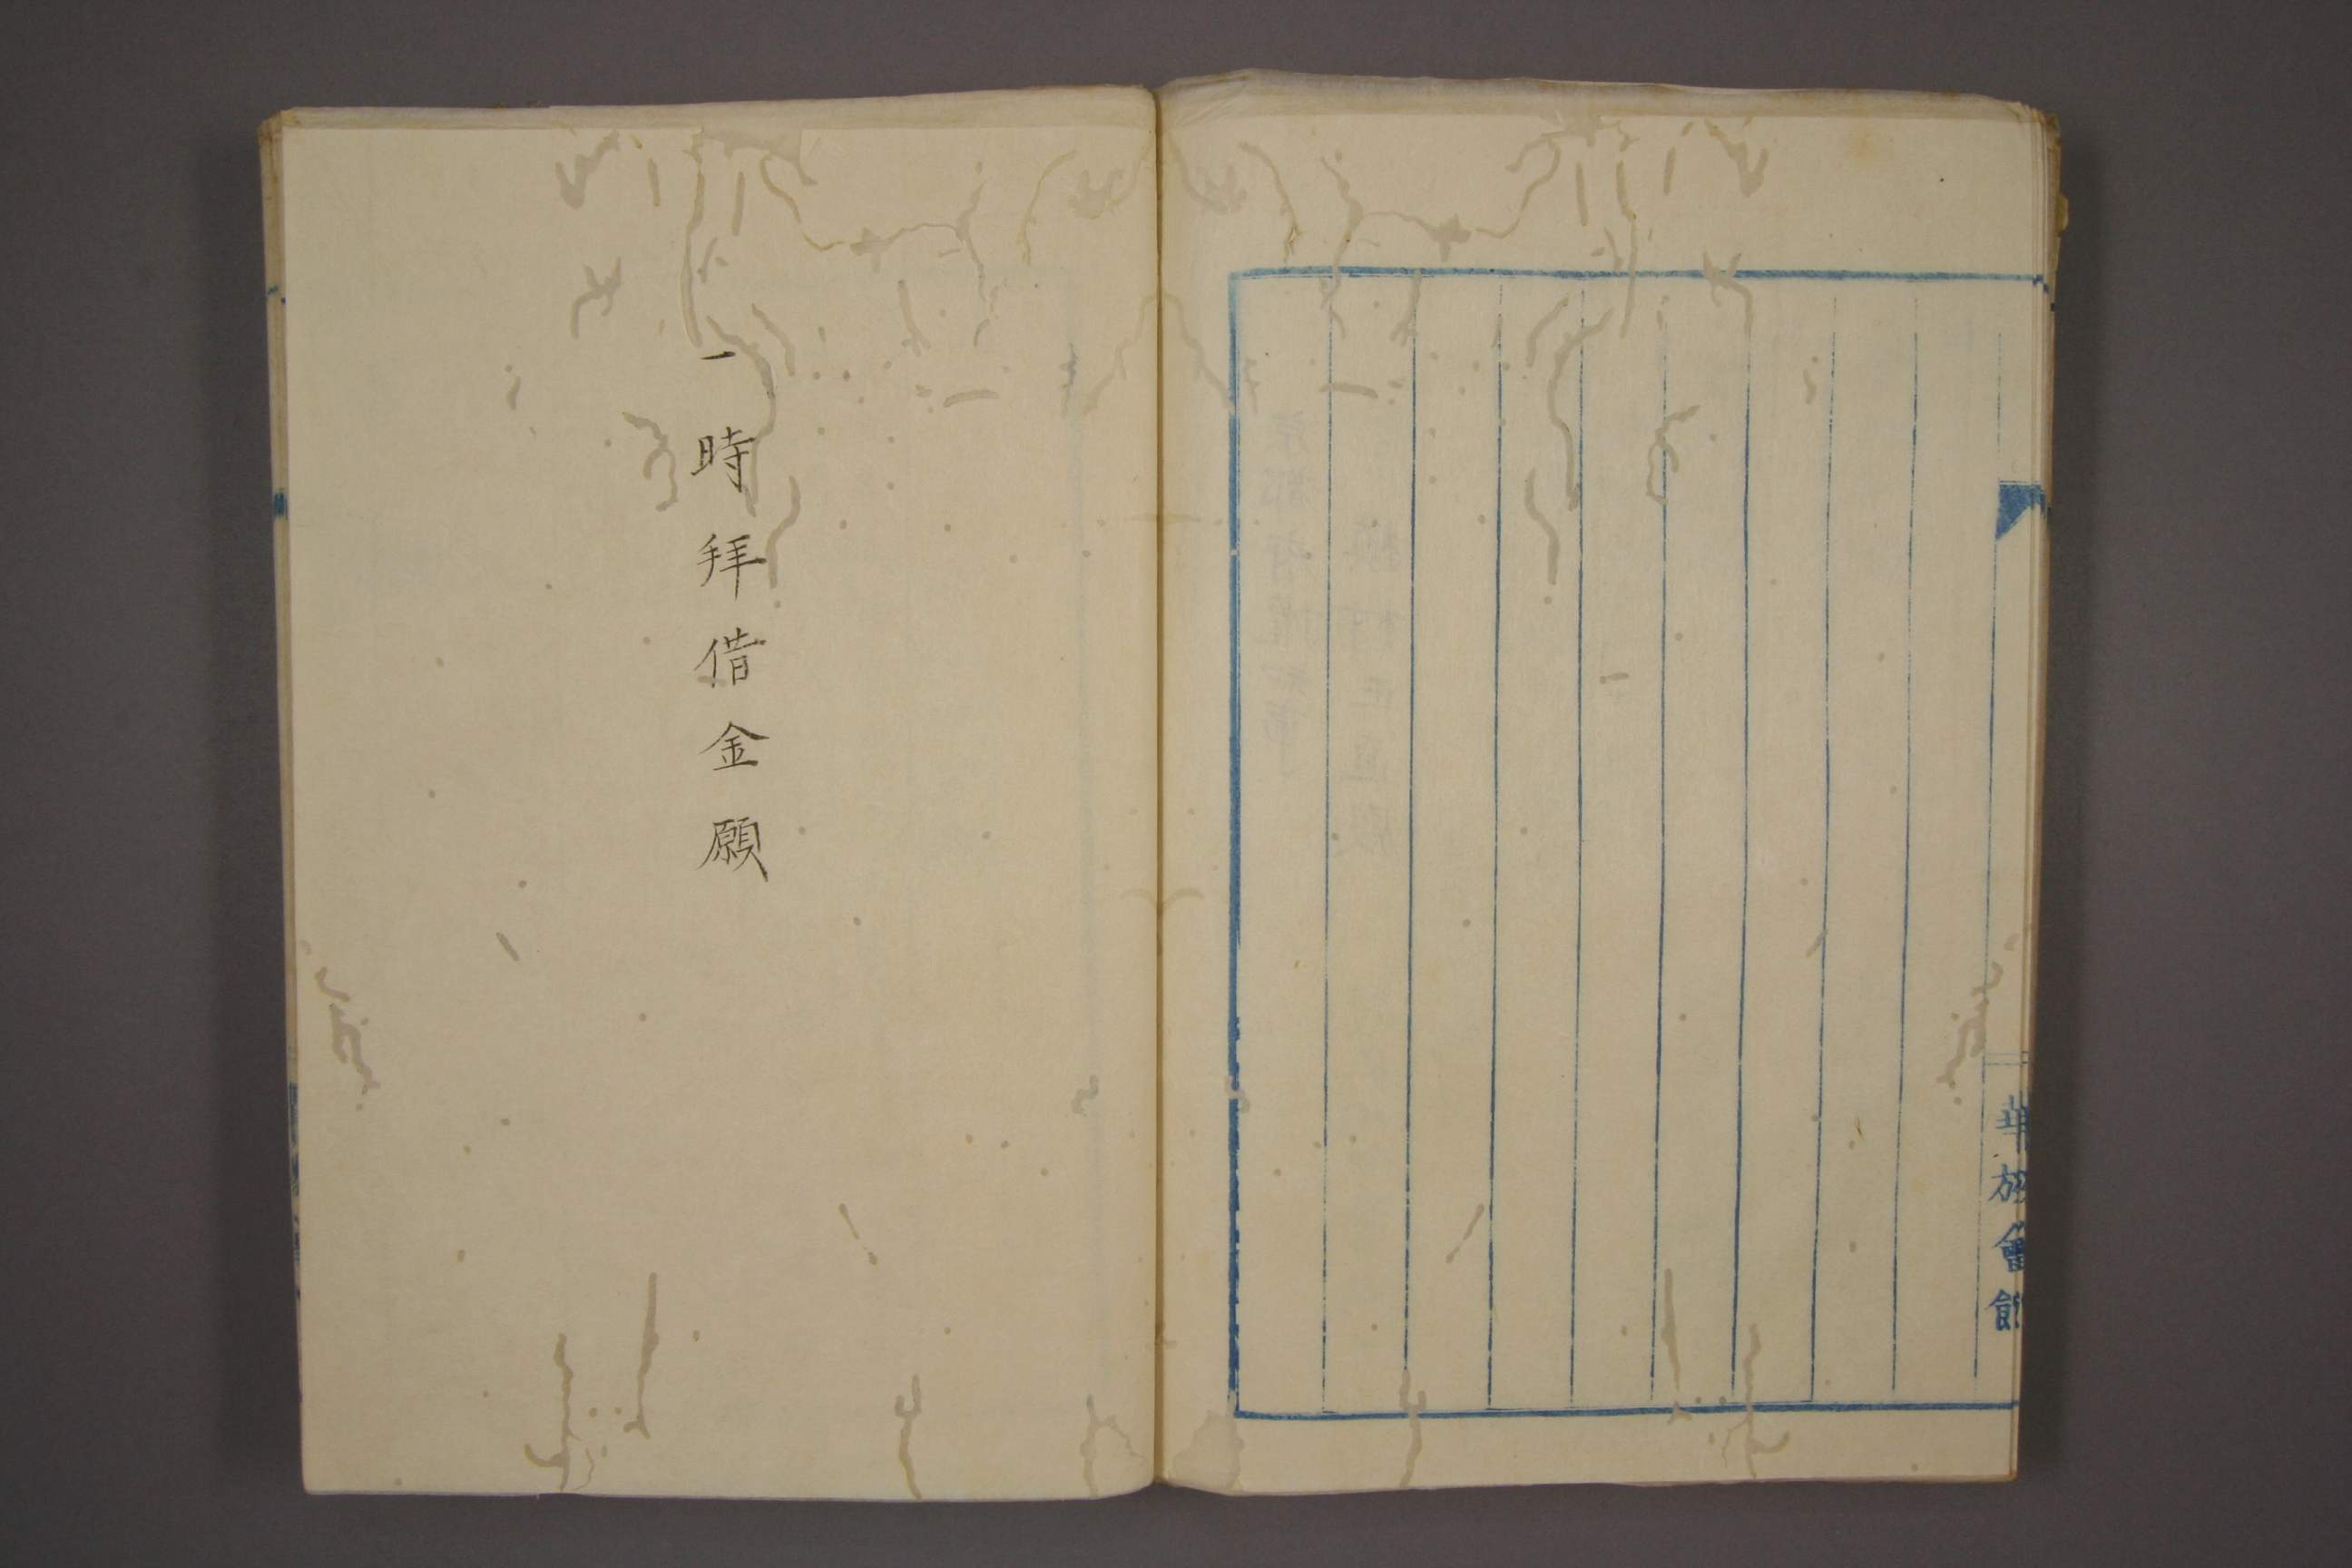 華族會館
一時拝借金願